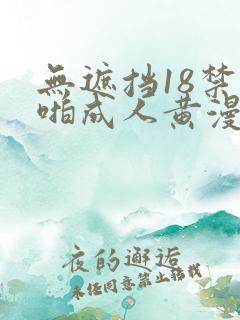 無遮挡18禁
啪成人黄漫
夜的邂逅
未经同意禁止转载